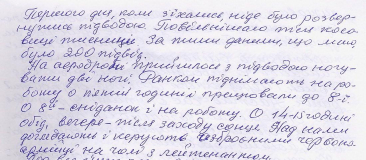 Першого дня, коли з'їхались, ніде було розвер-
нутись підводою. Повбивали після косо-
виці пшениці. За тими даними, що мено
було 260 підвід.
На аеродромі прийшлося з підводою ночу-
вати дві ночі. Ранком піднімають на ро-
боту о п'ятій годині працювати до 8-ї.
О 8° - сніданок і на роботу. О 14-15 годині
обід, вечеря - після заходу сонця. Над нами
доглядають і керують озброєними червоно-
армійці на чолі з лейтенантом.